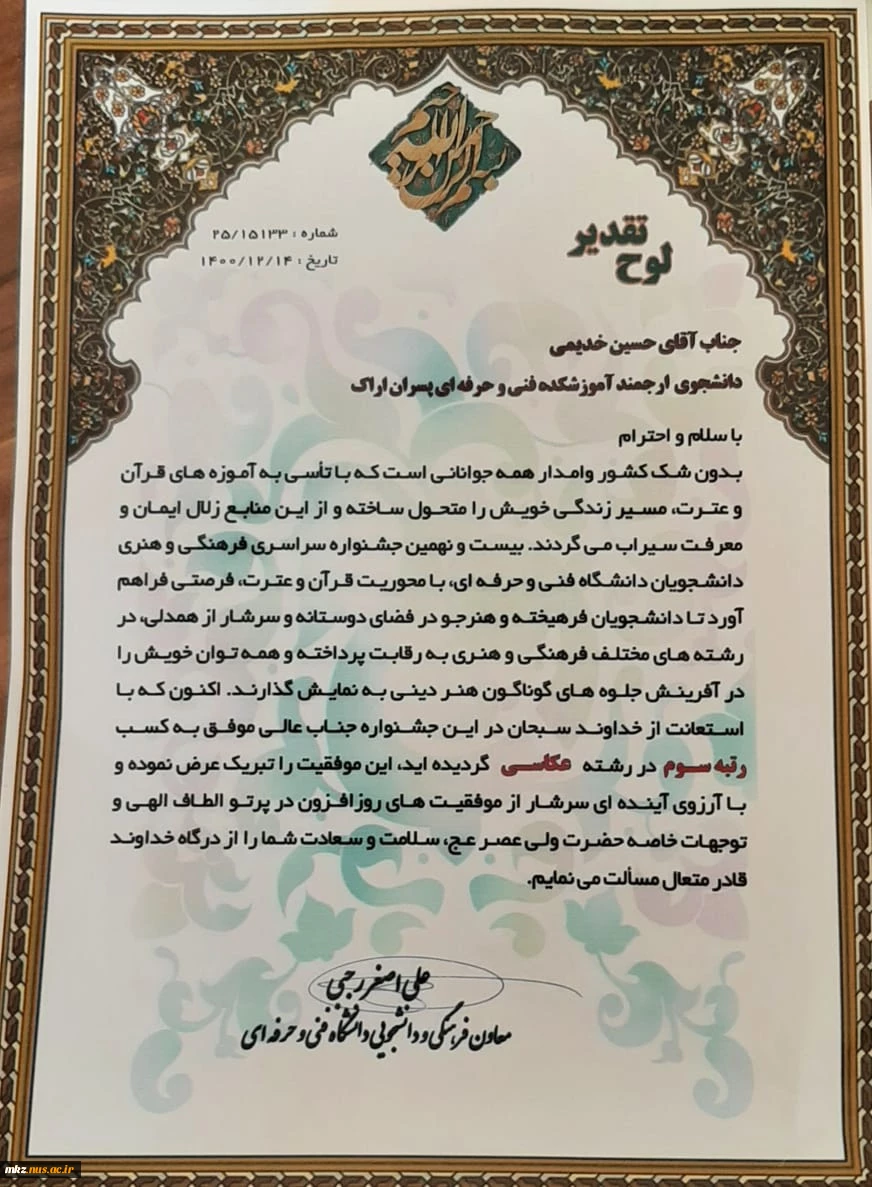 بسم الله الرحمن الرحیم
شماره : ۲۵/۱۵۱۳۳
تاریخ : ۱۴۰۰/۱۲/۱۴
لوح تقدیر
جناب آقای حسین خدیمی
دانشجوی ارجمند آموزشکده فنی و حرفه ای پسران اراک
با سلام و احترام
بدون شک کشور وامدار همه جوانانی است که با تأسی به آموزه های قرآن
و عترت، مسیر زندگی خویش را متحول ساخته و از این منابع زلال ایمان و
معرفت سیراب می گردند. بیست و نهمین جشنواره سراسری فرهنگی و هنری
دانشجویان دانشگاه فنی و حرفه ای، با محوریت قرآن و عترت، فرصتی فراهم
آورد تا دانشجویان فرهیخته و هنرجو در فضای دوستانه و سرشار از همدلی، در
رشته های مختلف فرهنگی و هنری به رقابت پرداخته و همه توان خویش را
در آفرینش جلوه های گوناگون هنر دینی به نمایش گذارند. اکنون که با
استعانت از خداوند سبحان در این جشنواره جناب عالی موفق به کسب
رتبه سوم در رشته عکاسی گردیده اید، این موفقیت را تبریک عرض نموده و
با آرزوی آینده ای سرشار از موفقیت های روزافزون در پرتو الطاف الهی و
توجهات خاصه حضرت ولی عصر عج، سلامت و سعادت شما را از درگاه خداوند
قادر متعال مسألت می نمایم.
علی اصغر رجبی
معاون فرهنگی و دانشجویی دانشگاه فنی و حرفه ای
mkz.nus.ac.ir